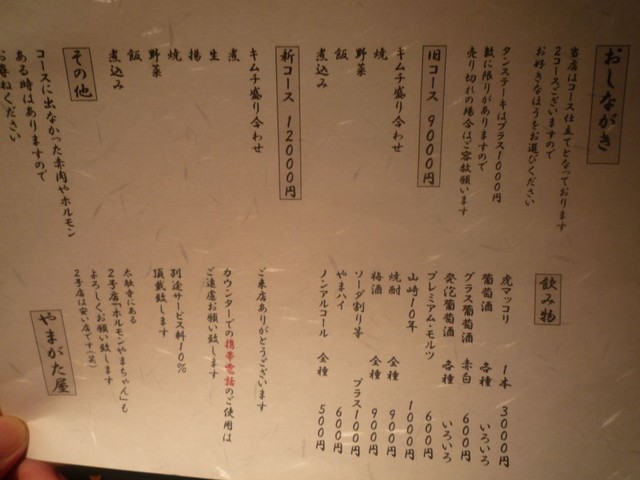 おしながき
当店はコース仕立てとなっております
2コースございますので
お好きなほうをお選びください
タンステーキはプラス1000円
数に限りがありますので
売り切れの場合はご容赦願います
旧コース 9000円
キムチ盛り合わせ
焼
野菜
飯
煮込み
新コース 12000円
キムチ盛り合わせ
煮
生
揚
焼
野菜
飯
煮込み
その他
コースに出なかった赤肉やホルモン
ある時はありますので
お尋ねください
飲み物
虎マッコリ 1本 3000円
葡萄酒 各種 いろいろ
グラス葡萄酒 赤白 600円
発泡葡萄酒 各種 いろいろ
プレミアム・モルツ 600円
山崎10年 1000円
焼酎 全種 900円
梅酒 全種 900円
ソーダ割り等 プラス100円
やまハイ 600円
ノンアルコール 全種 500円
ご来店ありがとうございます
カウンターでの携帯電話のご使用は
ご遠慮お願い致します
別途サービス料10%
頂戴致します
太融寺にある
2号店「ホルモンやまちゃん」も
よろしくお願い致します
2号店は安い店です(笑)
やまがた屋